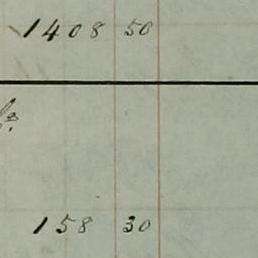 1408 50
158 30